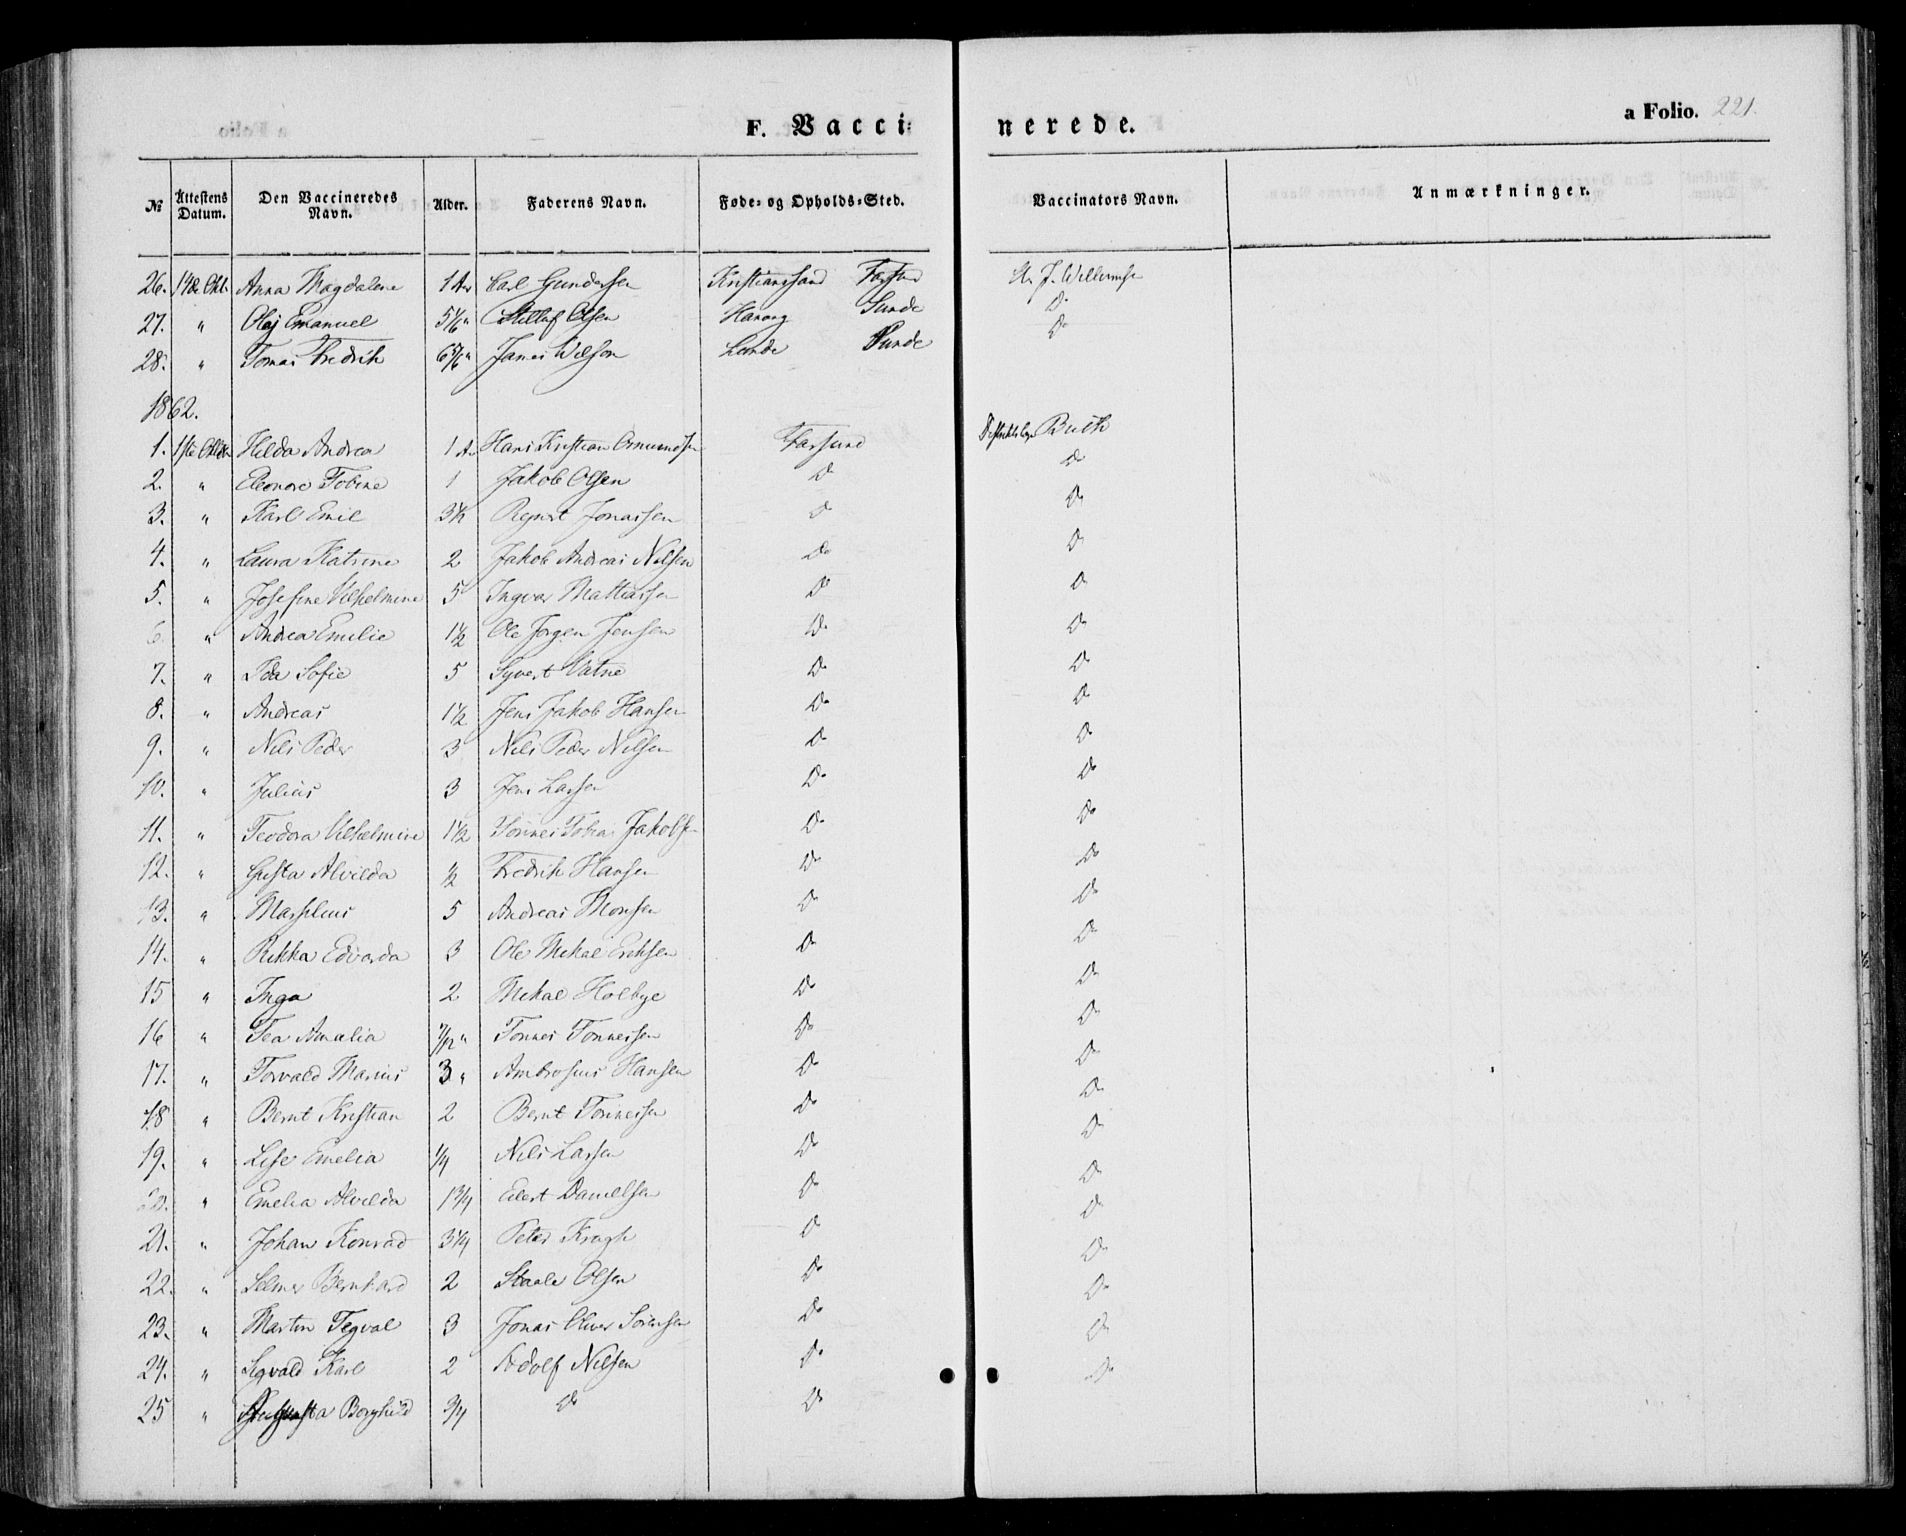 F. Vacci: nerede. a Folio. 221.
№ Attestens Datum. Den Vaccineredes Navn. Alder. Faderens Navn. Føde- og Opholds-Sted. Vaccinators Navn. Anmærkninger.
26. 14de Okt. Anna Magdalene 1 Carl Gundersen Kristianssand Farsund J. Willumsen
27. " Olaj Emanuel 5 1/6 " Olsen Sunde Do
28. " Tomas Fredrik 6 5/6 " James Wilson Lande Sunde Do
1862.
1. Hilda Andrea 1 Hans Kristian Farsund Buch
2. " Eleonore Tobine 1 Jakob Olsen Do Do
3. " Karl Emil 3 1/2 Jonassen Do Do
4. " Laura Katrine 2 Jakob Andreas Nilsen Do Do
5. " Josefine Vilhelmine 5 Ingvar Mattiassen Do Do
6. " Andrea Emilie 1 1/2 Ole Jørgen Jensen Do Do
7. " Ida Sofie 5 Syvert Vatne Do Do
8. " Andreas 1 1/2 Jens Jakob Hansen Do Do
9. " Nils Peder 3 Nils Peder Nilsen Do Do
10. " Julius 3 Jens Larsen Do Do
11. " Teodora Vilhelmine 1 1/2 Tönnes Tobias Jakobsen Do Do
12. " Gusta Alvilda 1/2 Fredrik Hansen Do Do
13. " Marselius 5 Andreas Monsen Do Do
14. " Rikka Edvarda 3 Ole Mikal Eriksen Do Do
15 " Inga 2 Mikal Holbye Do Do
16 " Tea Amalia 7/12 " Tönnes Tönnessen Do Do
17. " Torvald Marius 3 " Ambrosius Hansen Do Do
18 " Bernt Kristian 2 Bernt Tönnessen Do Do
19. " Lise Emelia 1/4 Nils Larsen Do Do
20. " Emelia Alvilda 1 3/4 Eilert Danielsen Do Do
21. " Johan Konrad 3 1/4 Peter Krogh Do Do
22. " Selmer Bernhard 2 Staale Olsen Do Do
23. " Martin Tegval 3 Jonas Oliver Sörensen Do Do
24. " Sigvald Karl 2 Adolf Nilsen Do Do
25 " Augusta Borghild 3/4 Do Do